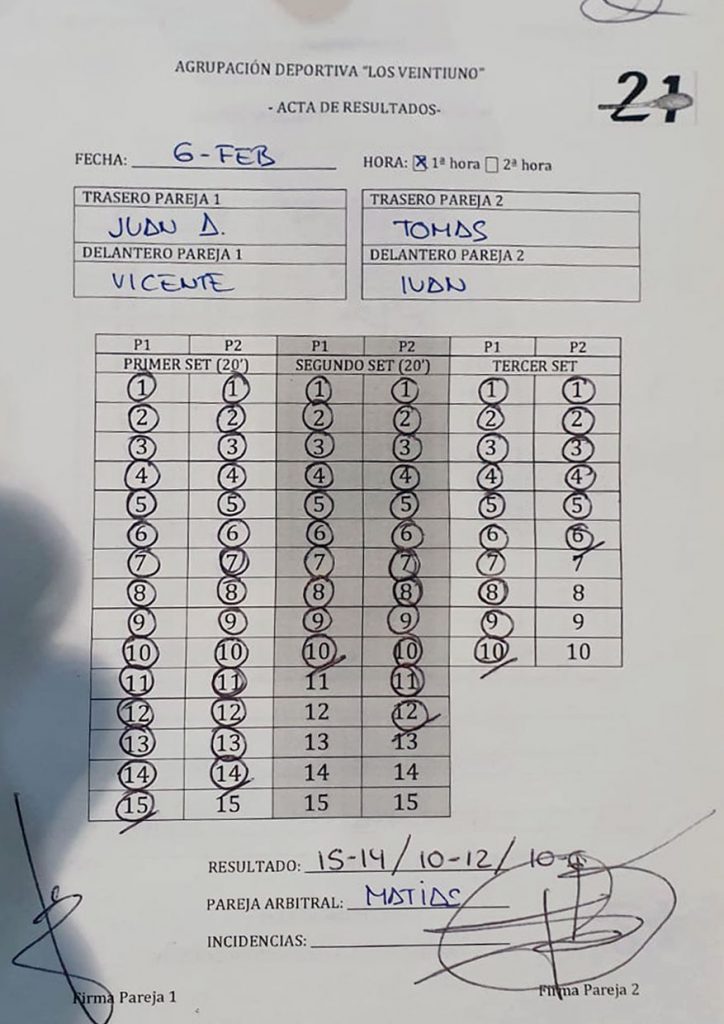 AGRUPACIÓN DEPORTIVA "LOS VEINTIUNO"
21
- ACTA DE RESULTADOS-
FECHA: 6-FEB HORA: X 1ª hora 2ª hora
TRASERO PAREJA 1 TRASERO PAREJA 2
JUAN A. TOMAS
DELANTERO PAREJA 1 DELANTERO PAREJA 2
VICENTE IVAN
P1 P2 P1 P2 P1 P2
PRIMER SET (20') SEGUNDO SET (20') TERCER SET
1 1 1 1 1 1
2 2 2 2 2 2
3 3 3 3 3 3
4 4 4 4 4 4
5 5 5 5 5 5
6 6 6 6 6 6
7 7 7 7 7 7
8 8 8 8 8 8
9 9 9 9 9 9
10 10 10 10 10 10
11 11 11 11
12 12 12 12
13 13 13 13
14 14 14 14
15 15 15 15
RESULTADO: 15-14/10-12/10-6
PAREJA ARBITRAL: MATÍAS
INCIDENCIAS:
Firma Pareja 1 Firma Pareja 2